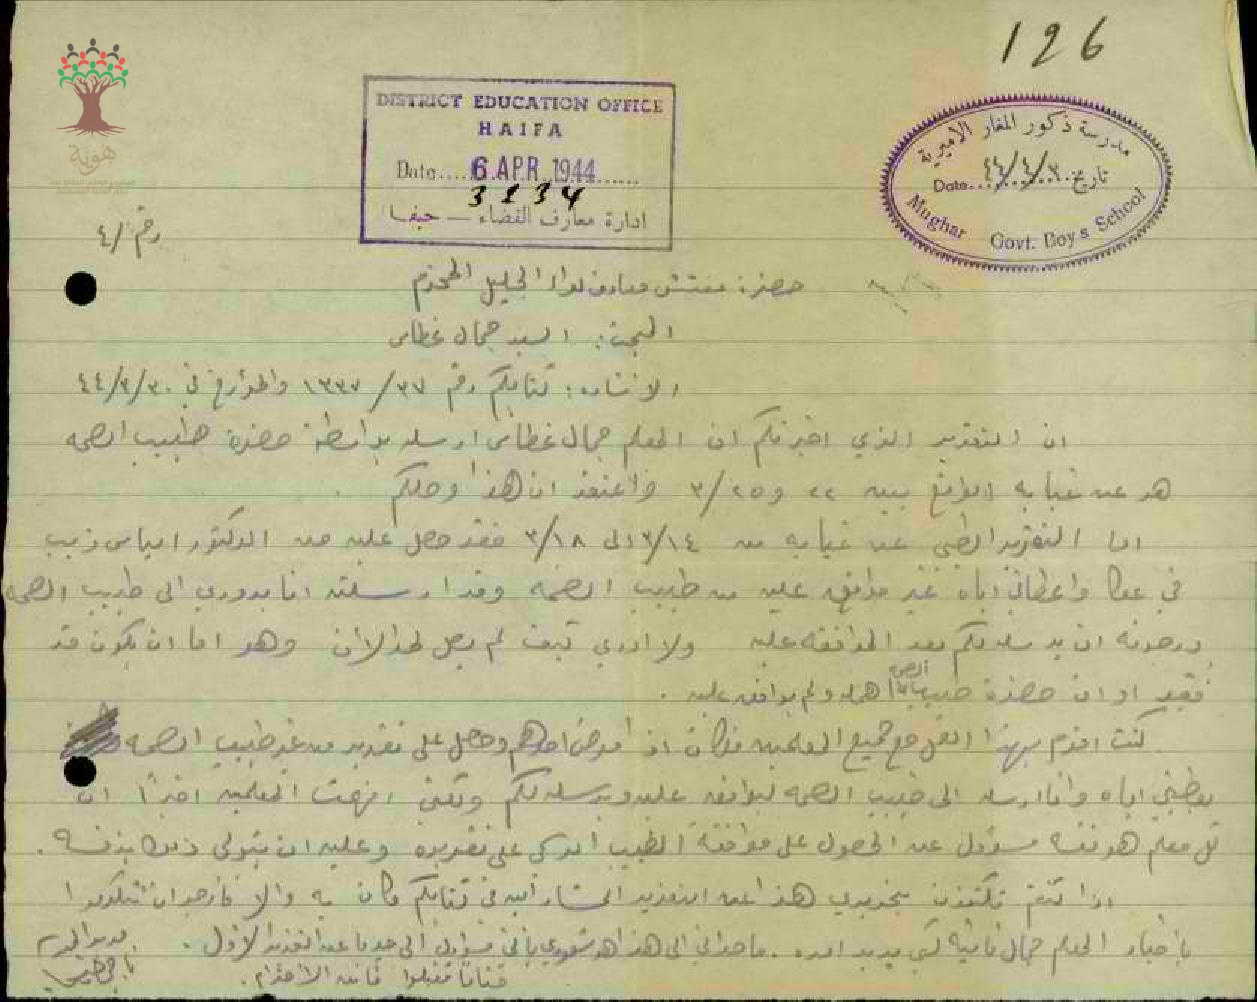 126
هوية
DISTRICT EDUCATION OFFICE
HAIFA
Date.... 6 APR 1944
3134
ادارة معارف القضاء — حيفا
مدرسة ذكور المغار الاميرية
تاريخ ٤٤/٤/٣ Date
Mughar Govt. Boys School
رقم ٤/
حضرة مفتش معارف لواء الجليل المحترم
البحث: السيد جمال غطاس
الاشارة: كتابكم رقم ١٣٣٧/٣٧ والمؤرخ في ٤٤/٣/٣٠
ان التقرير الذي اخبرتكم ان المعلم جمال غطاس ارسله بواسطة حضرة طبيب الصحة
هو عن غيابه الواقع بين ٢٢ و ٣/٢٥ واعتقد ان هذا وصلكم .
اما التقرير الطبي عن غيابه من ٣/١٤ الى ٣/١٨ فقد حصل عليه من الدكتور الياس ذيب
في عكا واعطاني اياه غير موافق عليه من طبيب الصحة وقد ارسلته انا بدوري الى طبيب الصحة
ورجوته ان يرسله لكم بعد الموافقة عليه ولا ادري كيف لم يصل لحد الآن وهو اما ان يكون قد
فقد او ان حضرة طبيب الصحة اهمله ولم يوافق عليه .
كنت اقوم بهذا العمل مع جميع المعلمين فكان اذا مرض احدهم وحصل على تقرير من غير طبيب الصحة
يعطيني اياه وانا ارسله الى طبيب الصحة ليوافق عليه ويرسله لكم ولكني افهمت المعلمين اخيرًا ان
كل معلم هو نفسه مسؤول عن الحصول على موافقة الطبيب المركزي على تقريره وعليه ان يتولى ذلك بنفسه .
اذا كنتم تكتفون بتحريري هذا عن التقرير المشار اليه في كتابكم كان به والا فارجو ان تتكرموا
باخبار المعلم جمال ثانية لكي يدبر امره . ما حداني الى هذا هو شعوري باني مسؤول الى حد ما عن التقرير الاول .
ختاما تقبلوا فائق الاحترام .
مدير المدرسة